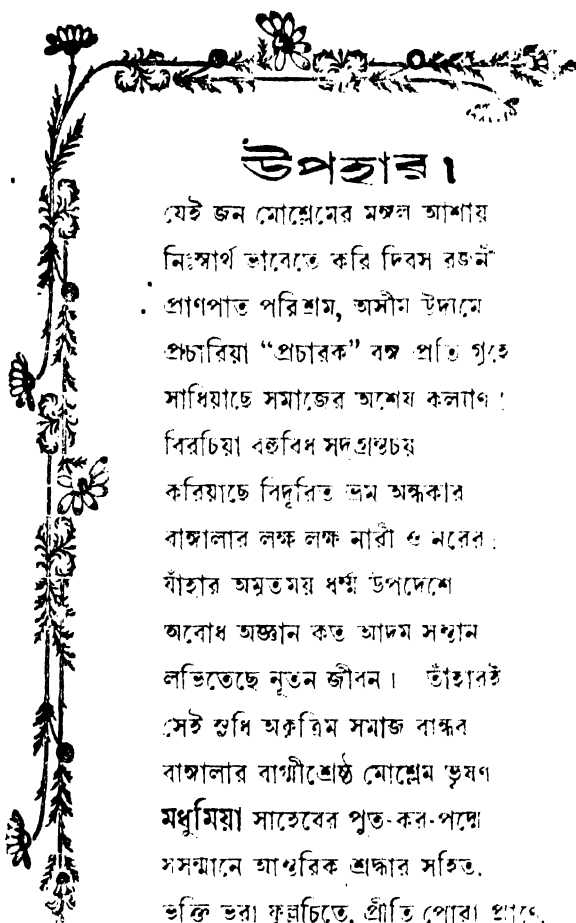 উপহার।
যেই জন মোশ্লেমের মঙ্গল আশায়
নিঃস্বার্থ ভাবেতে করি দিবস রজনী
প্রাণপাত পরিশ্রম, অসীম উদ্যমে
প্রচারিয়া “প্রচারক” বঙ্গ প্রতি গৃহে
সাধিয়াছে সমাজের অশেষ কল্যাণ।
বিরচিয়া বহুবিধ সদগ্রন্থচয়
করিয়াছে বিদূরিত ভ্রম অন্ধকার
বাঙ্গালার লক্ষ লক্ষ নারী ও নরের।
যাঁহার অমৃতময় ধর্ম্ম উপদেশে
অবোধ অজ্ঞান কত আদম সন্তান
লভিতেছে নূতন জীবন। তাঁহারই
সেই সুধি অকৃত্রিম সমাজ বান্ধব
বাঙ্গালার বাগ্মীশ্রেষ্ঠ মোশ্লেম ভূষণ
মধুমিয়া সাহেবের পুত-কর-পদ্মে
সসম্মানে আন্তরিক শ্রদ্ধার সহিত,
ভক্তি ভরা ফুল্লচিতে, প্রীতি পোরা প্রাণে,